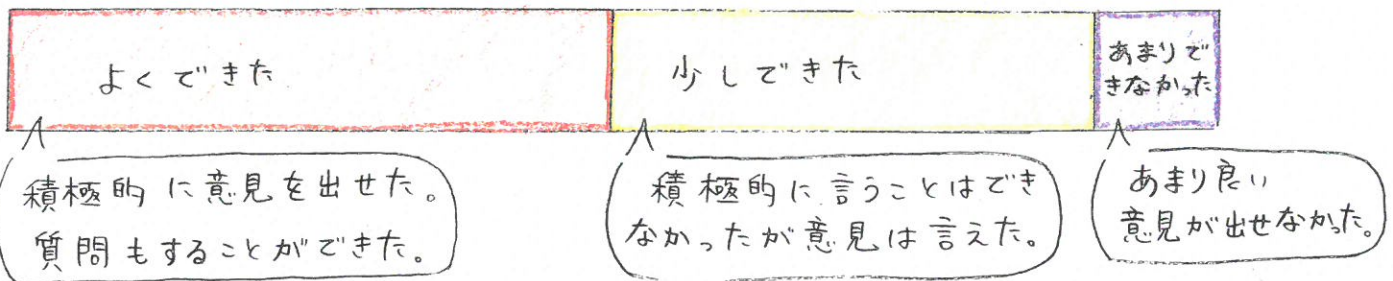 よくできた
少しできた
あまりで
きなかった
積極的に意見を出せた。
質問もすることができた。
積極的に言うことはでき
なかったが意見は言えた。
あまり良い
意見が出せなかった。